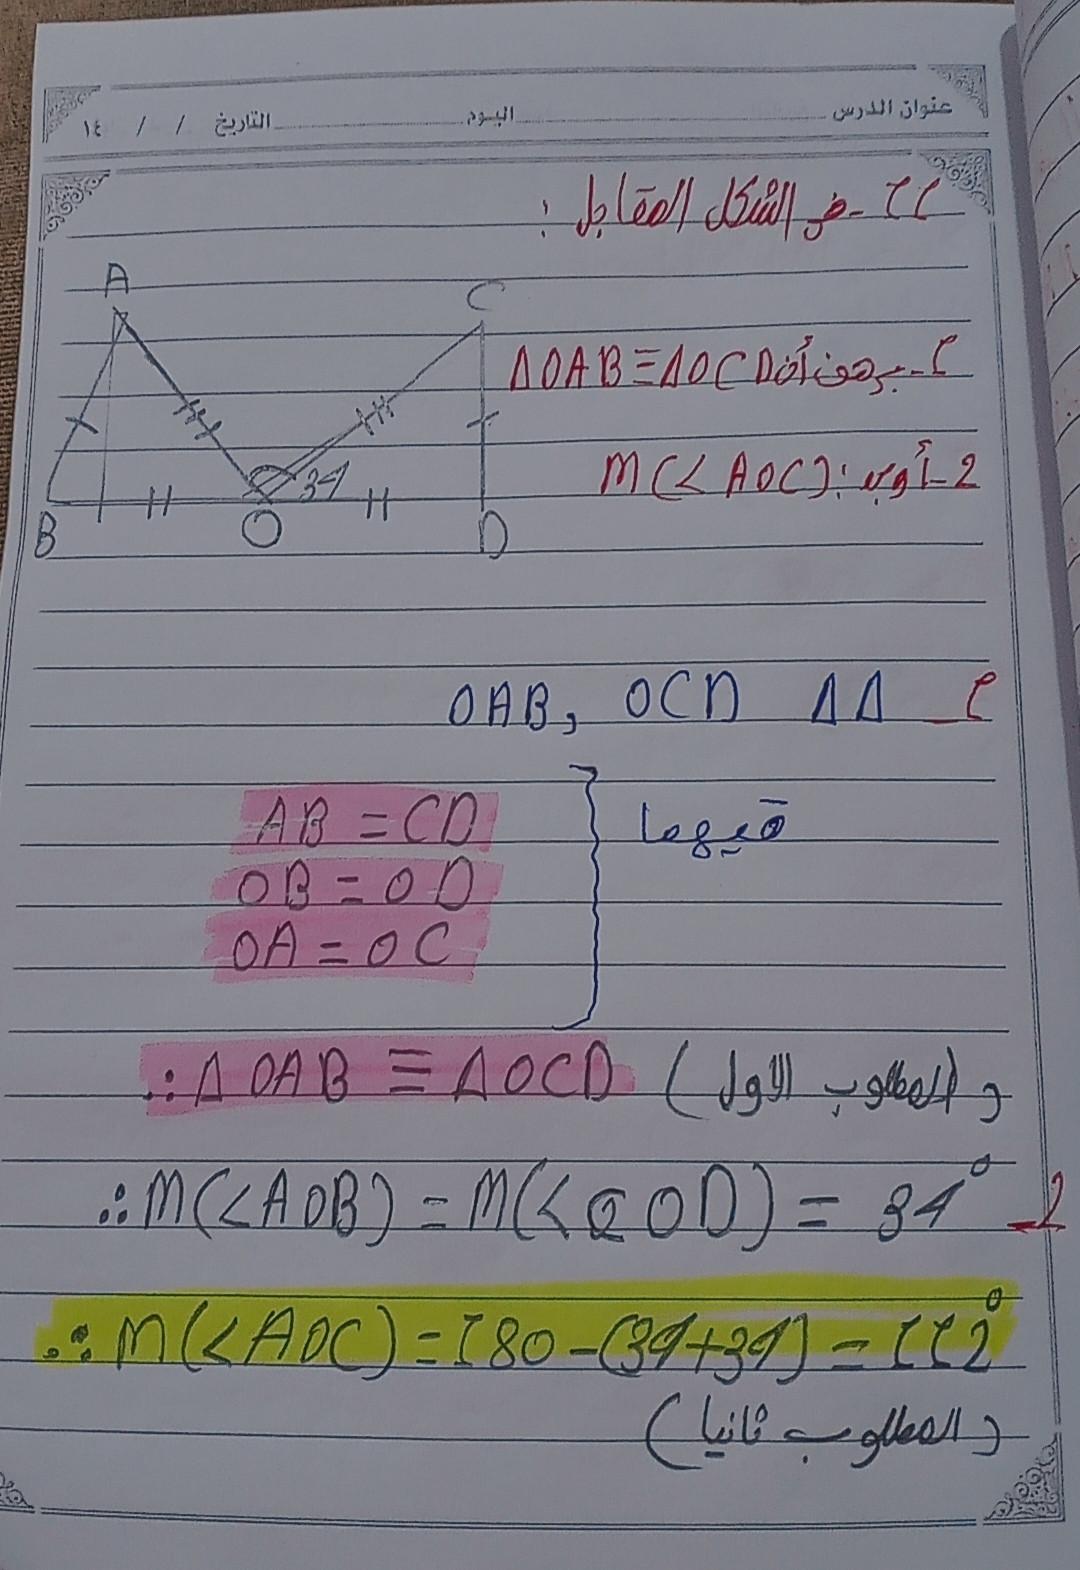 عنوان الدرس اليوم التاريخ / / ١٤
11 - في الشكل المقابل :
A
C
1 - برهن أن ΔOAB ≡ ΔOCD
2 - أوجد : M(<AOC)
34
B O D
1 - ΔΔ OAB, OCD
فيهما
AB = CD
OB = OD
OA = OC
∴ ΔOAB ≡ ΔOCD (المطلوب الاول)
2 - ∴ M(<AOB) = M(<COD) = 34°
∴ M(<AOC) = 180 - (34+34) = 112°
(المطلوب ثانيا)